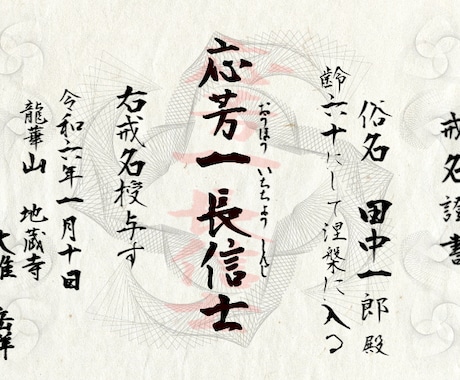 戒名證書
俗名 田中一郎殿
齢六十にして涅槃に入る
応芳一長信士
おうほう いちちょう しんじ
右戒名授与す
令和六年一月十日
龍華山 地蔵寺